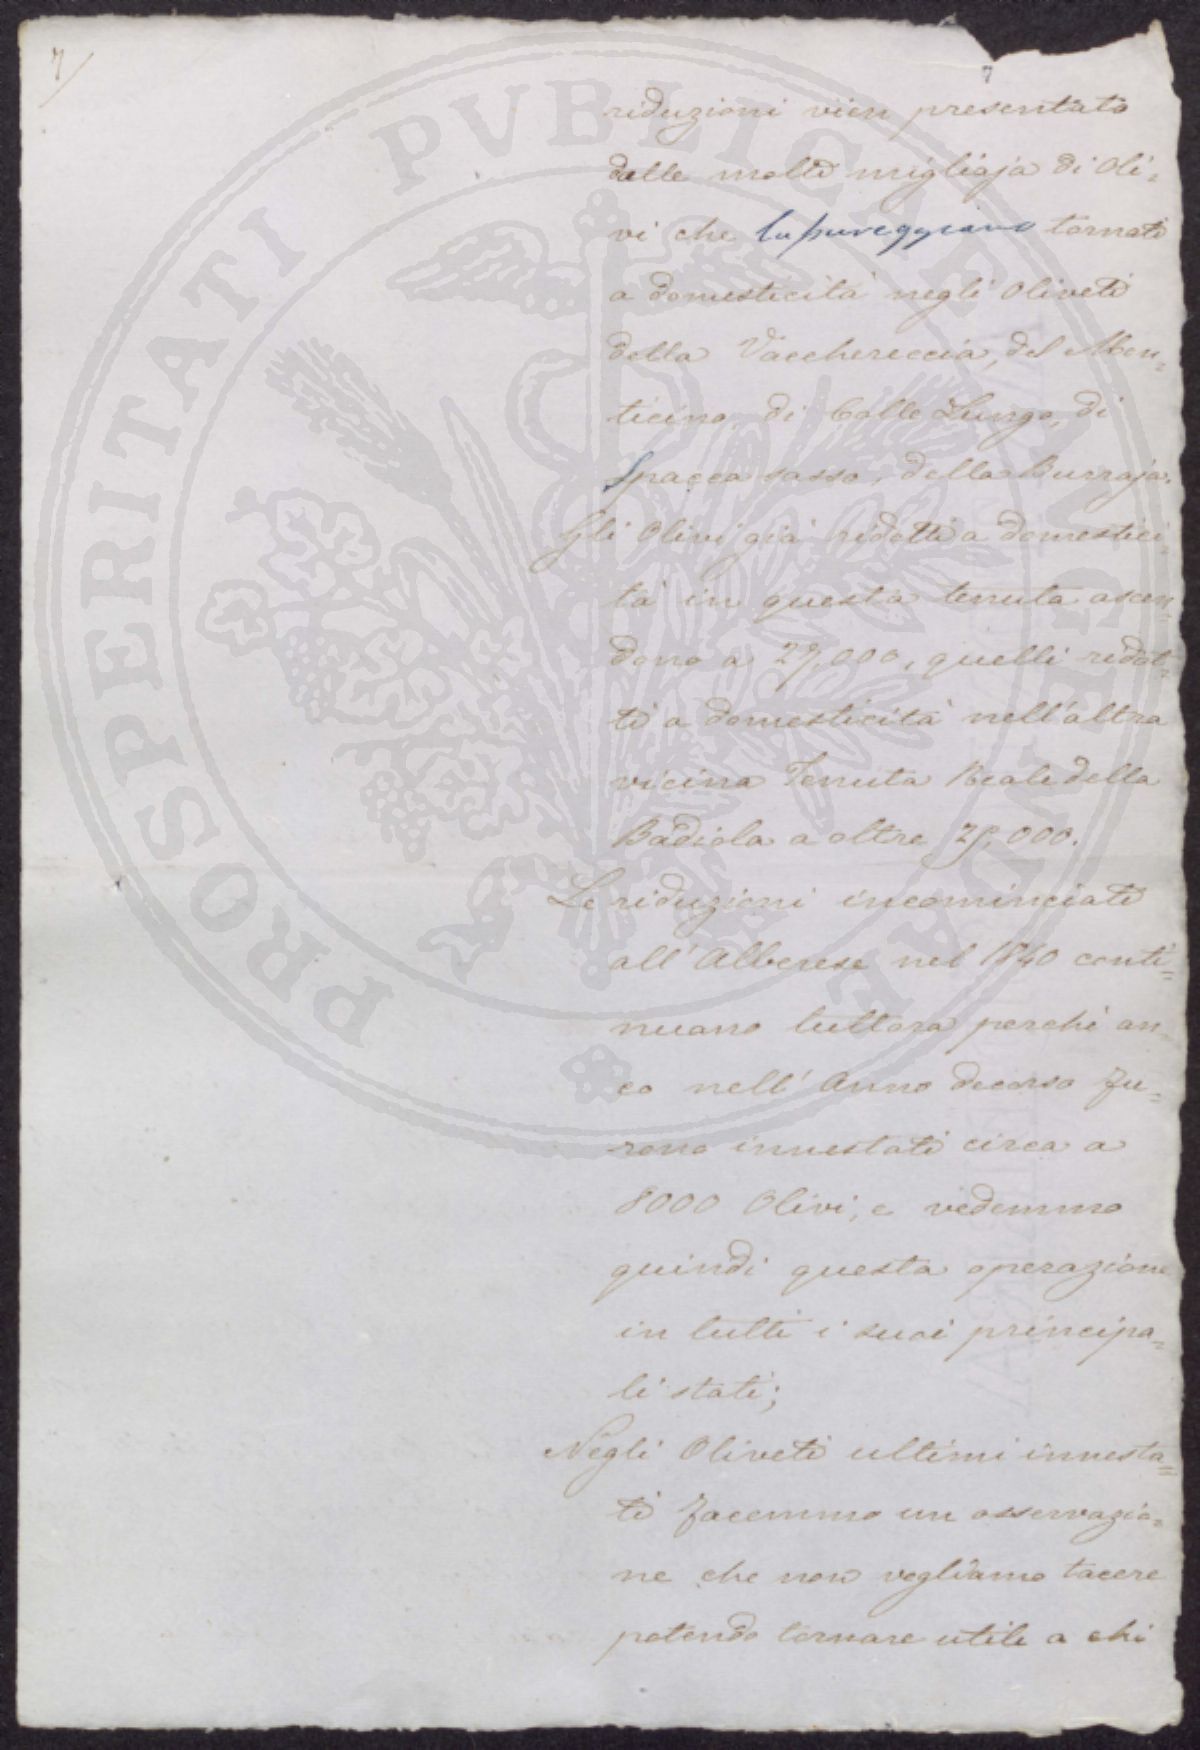 7
7
riduzioni vien presentato
dalle molte migliaja di Oli=
vi che lussureggiano tornati
a domesticità negli Oliveti
della Vacchereccia, del Mon=
ticino, di Colle Lungo, di
Spacca sasso, della Burraja.
Gli Olivi già ridotti a domestici=
tà in questa tenuta ascen=
dono a 29,000, quelli ridot=
ti a domesticità nell'altra
vicina Tenuta Reale della
Badiola a oltre 25,000.
Le riduzioni incominciate
all'Alberese nel 1840 conti=
nuano tuttora perchè an=
co nell'Anno decorso fu=
rono innestati circa a
8000 Olivi, e vedemmo
quindi questa operazione
in tutti i suoi principa=
li stati;
Negli Oliveti ultimi innesta=
ti facemmo un osservazio=
ne che non vogliamo tacere
potendo tornare utile a chi
PROSPERITATI PVBLICAE AVGENDAE